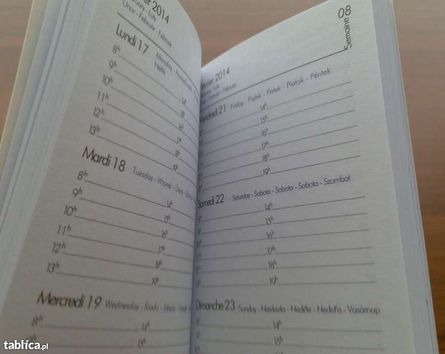 2014
Lundi 17
8h 14h
9h 15h
10h 16h
11h 17h
12h 18h
13h 19h
Mardi 18 Tuesday - Wtorek - Úterý
8h 14h
9h 15h
10h 16h
11h 17h
12h 18h
13h 19h
Mercredi 19 Wednesday - Środa
8h 14h
15h
Semaine 08
février 2014
Vendredi 21 Friday - Piątek - Pátek - Piatok - Péntek
14h
15h
16h
17h
18h
19h
Samedi 22 Saturday - Sobota - Sobota - Sobota - Szombat
14h
15h
16h
17h
18h
19h
Dimanche 23 Sunday - Niedziela - Neděle - Nedeľa - Vasárnap
14h
15h
16h
tablica.pl